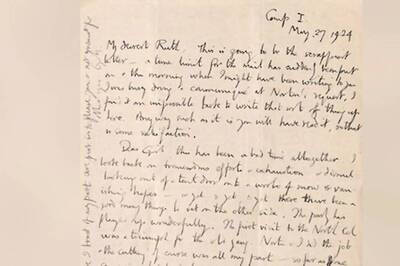 Camp I.
May. 27 1924
My dearest Ruth. This is going to be the scrappiest
letter - a time limit for the mail has suddenly been put
on & the morning when I might have been writing to you
I was busy doing a communiqué at Norton's request, I
find it an impossible task to write that sort of thing up
here. Anyway such as it is you will have read it, so that
is some satisfaction.
Dear Girl this has been a bad time altogether I
look back on tremendous efforts & exhaustion & dismal
looking out of a tent door onto a world of snow & van-
ishing hopes - & yet, & yet, & yet there have been a
good many things to set on the other side. The party has
played up wonderfully. The first visit to the North Col
was a triumph for the old gang. Norton & I did the job
& the cutting of course was all my part - so far as one